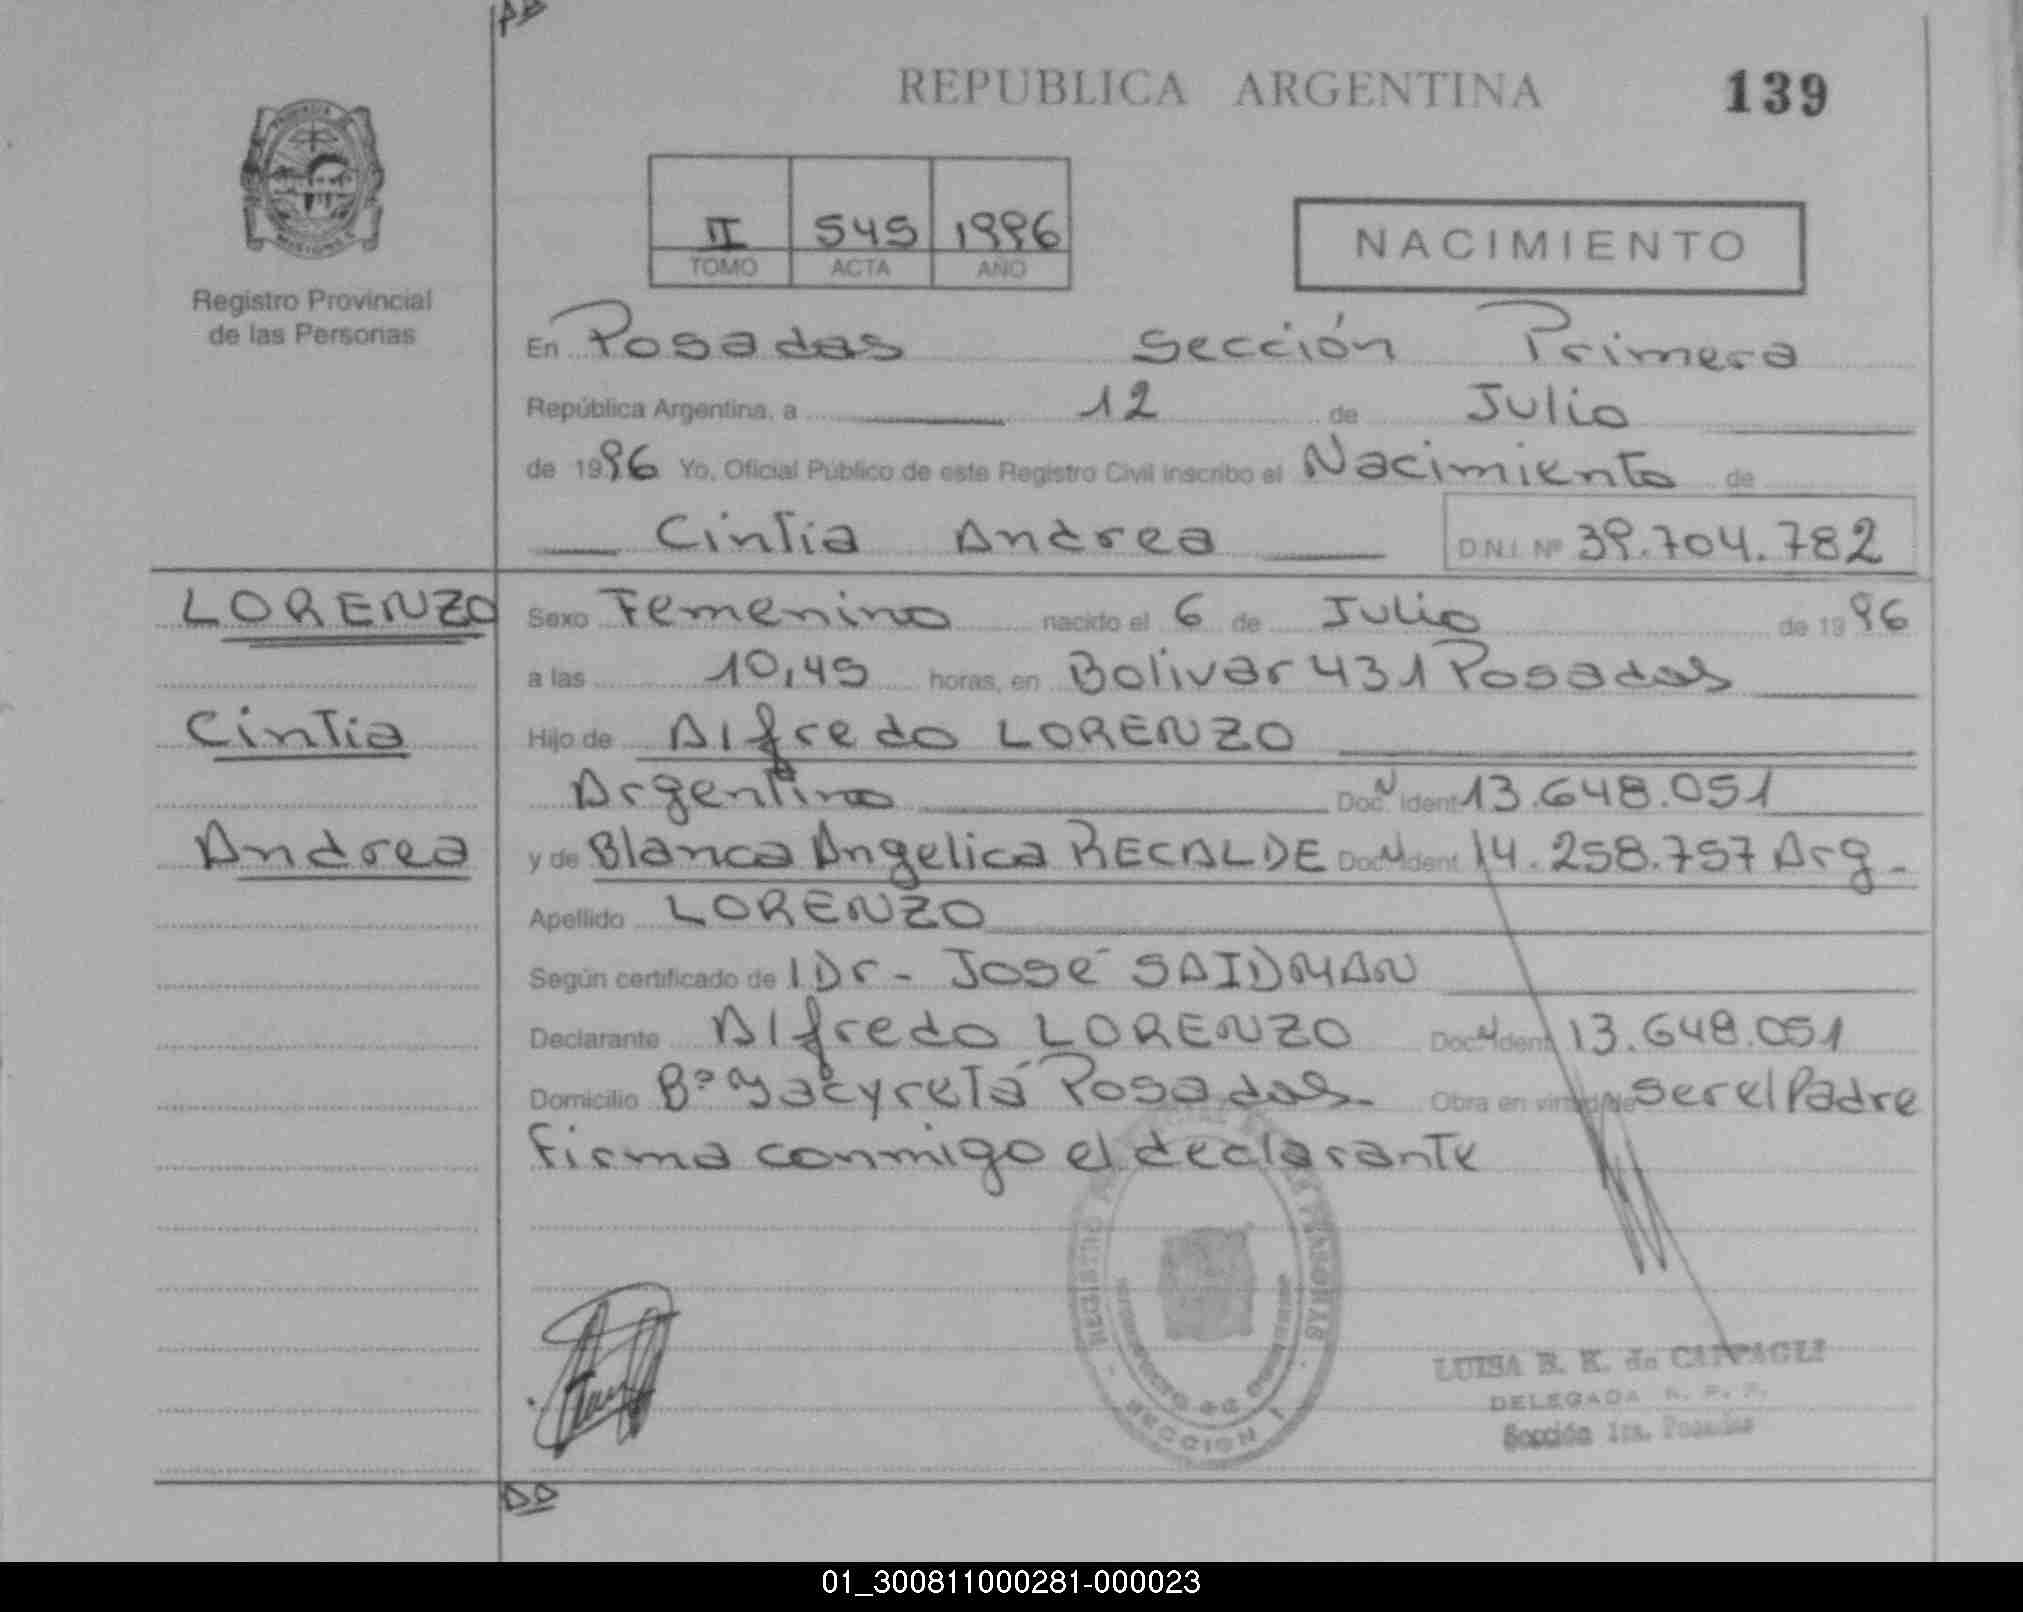 REPUBLICA ARGENTINA 139
II 545 1996
TOMO ACTA AÑO
NACIMIENTO
Registro Provincial
de las Personas
En Posadas Sección Primera
República Argentina, a 12 de Julio
de 1996 Yo, Oficial Público de este Registro Civil inscribo el Nacimiento de
Cintia Andrea D.N.I. Nº 39.704.782
LORENZO
Cintia
Andrea
Sexo Femenino nacido el 6 de Julio de 1996
a las 10,45 horas, en Bolivar 431 Posadas
Hijo de Alfredo LORENZO
Argentino Doc. Ident 13.648.051
y de Blanca Angelica RECALDE Doc. Ident 14.258.757 Arg.
Apellido LORENZO
Según certificado de Dr - José SAIDMAN
Declarante Alfredo LORENZO Doc. Ident 13.648.051
Domicilio Bº Yacyretá Posadas. Obra en virtud de ser el Padre
Firma conmigo el declarante
REGISTRO PROVINCIAL DE LAS PERSONAS
SECCION 1
LUISA E. K. de CAPPAGLI
DELEGADA R. P. P.
Sección 1ra. Posadas
01_300811000281-000023